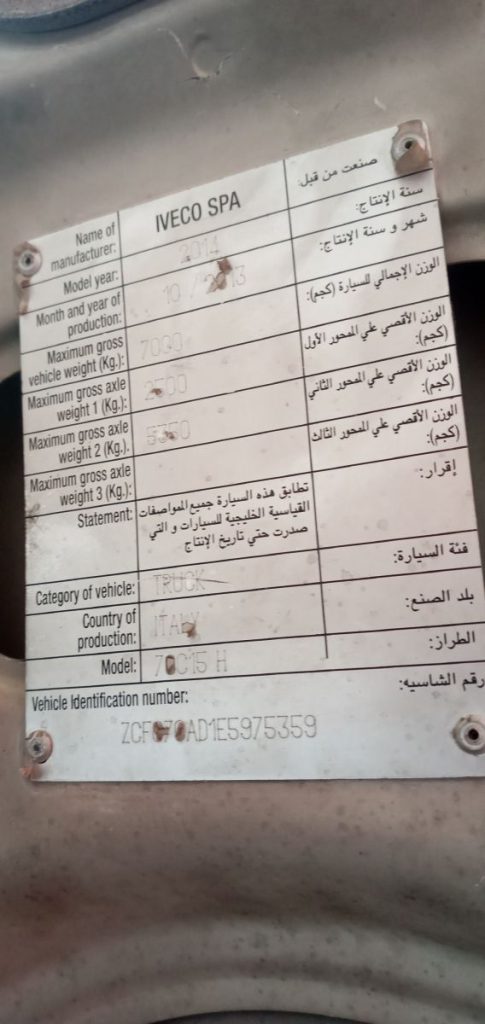 Name of
manufacturer:
IVECO SPA
صنعت من قبل:
Model year:
2014
سنة الإنتاج:
Month and year of
production:
10 / 2013
شهر و سنة الإنتاج:
Maximum gross
vehicle weight (Kg.):
7000
الوزن الإجمالي للسيارة (كجم):
Maximum gross axle
weight 1 (Kg.):
2500
الوزن الأقصي علي المحور الأول
(كجم):
Maximum gross axle
weight 2 (Kg.).
5350
الوزن الأقصي علي المحور الثاني
(كجم):
Maximum gross axle
weight 3 (Kg.):
الوزن الأقصي علي المحور الثالث
(كجم):
Statement:
تطابق هذه السيارة جميع المواصفات
القياسية الخليجية للسيارات و التي
صدرت حتي تاريخ الإنتاج
إقرار:
Category of vehicle:
TRUCK
فئة السيارة:
Country of
production:
ITALY
بلد الصنع:
Model:
70C15 H
الطراز:
Vehicle Identification number:
رقم الشاسيه:
ZCFC70AD1E5975359